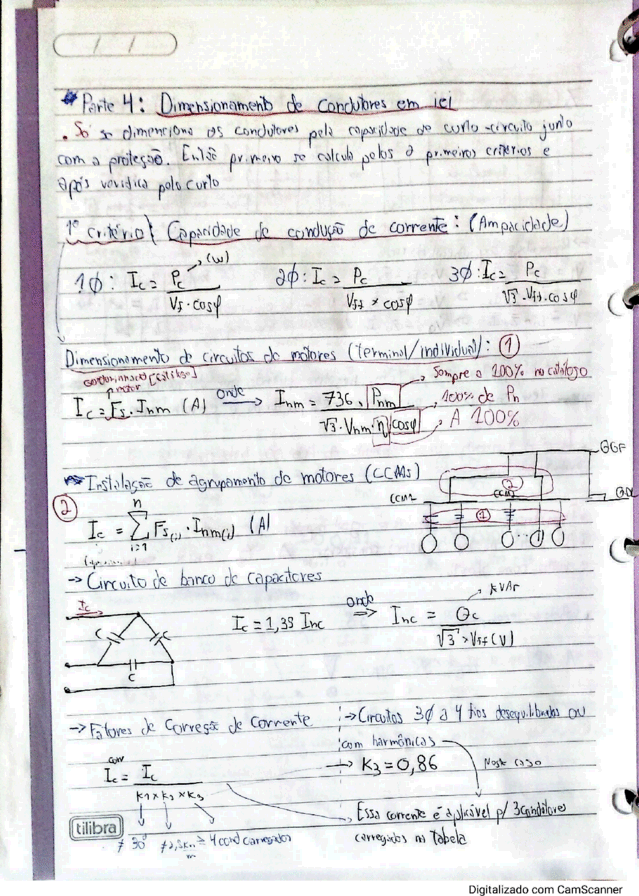 / /
* Parte 4: Dimensionamento de condutores em iei
. Só se dimenciona os condutores pela capacidade de curto-circuito junto
com a proteção. Então primeiro se calcula pelos 2 primeiros critérios e
após verifica pelo curto
1º critério | Capacidade de condução de corrente: (Ampacidade)
1Φ: Ic = Pc → (W) / Vf · cosφ 2Φ: Ic = Pc / Vff × cosφ 3Φ: Ic = Pc / √3 · Vff · cosφ
Dimensionamento de circuitos de motores (terminal/individual): ①
motor
Ic = Fs · Inm (A) onde → Inm = 736 · Pnm / √3 · Vnm · η cosφ
Sempre a 100% no catálogo
100% de Pn
A 100%
Instalação de agrupamento de motores (CCMs)
② Ic = n Σ i=1 Fs(i) · Inm(i) (A)
QGF
②
CCM2
CCM1
①
→ Circuito de banco de capacitores
Ic
C C
C
Ic = 1,35 Inc onde ⇒ Inc = Qc → kVAr / √3 × Vff (V)
→ Fatores de Correção de Corrente
Ic = Ic / K1 × K2 × K3
≠ 30°
≥ 4 cond carregados
→ Circuitos 3Φ a 4 fios desequilibrados ou
com harmônicas
→ K3 = 0,86 Neste caso
Essa corrente é aplicável p/ 3 condutores
carregados na Tabela
tilibra
Digitalizado com CamScanner